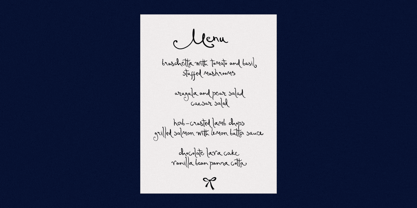 Menu
bruschetta with tomato and basil
stuffed mushrooms
arugula and pear salad
caesar salad
herb-crusted lamb chops
grilled salmon with lemon butter sauce
chocolate lava cake
vanilla bean panna cotta